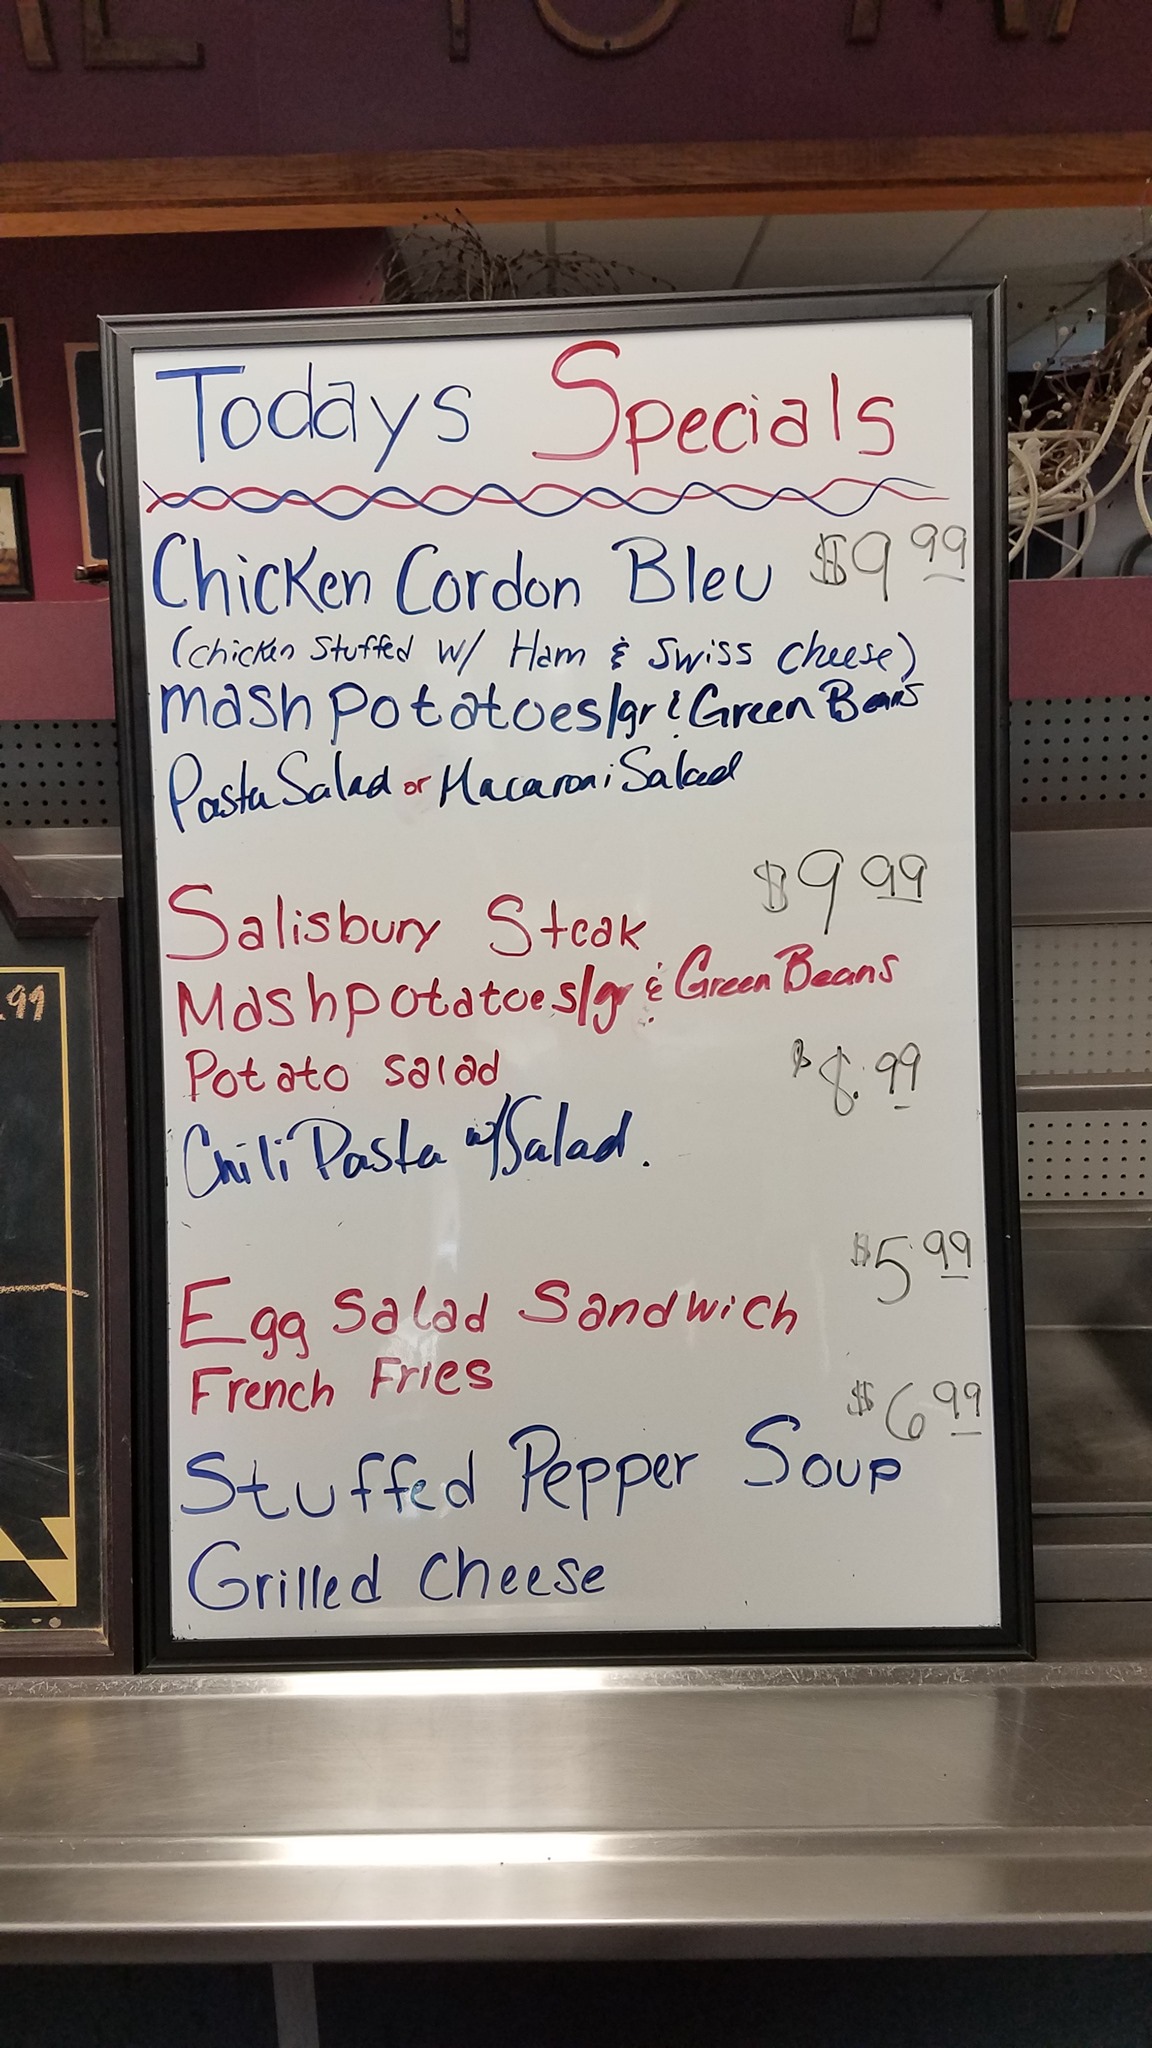 Todays Specials
Chicken Cordon Bleu $9 99
(Chicken Stuffed w/ Ham & Swiss Cheese)
Mash Potatoes/gr & Green Beans
Pasta Salad or Macaroni Salad
$9 99
Salisbury Steak
Mash potatoes/gr & Green Beans
Potato Salad
$8.99
Chili Pasta w/Salad.
$5.99
Egg Salad Sandwich
French Fries
$6 99
Stuffed Pepper Soup
Grilled Cheese
.99